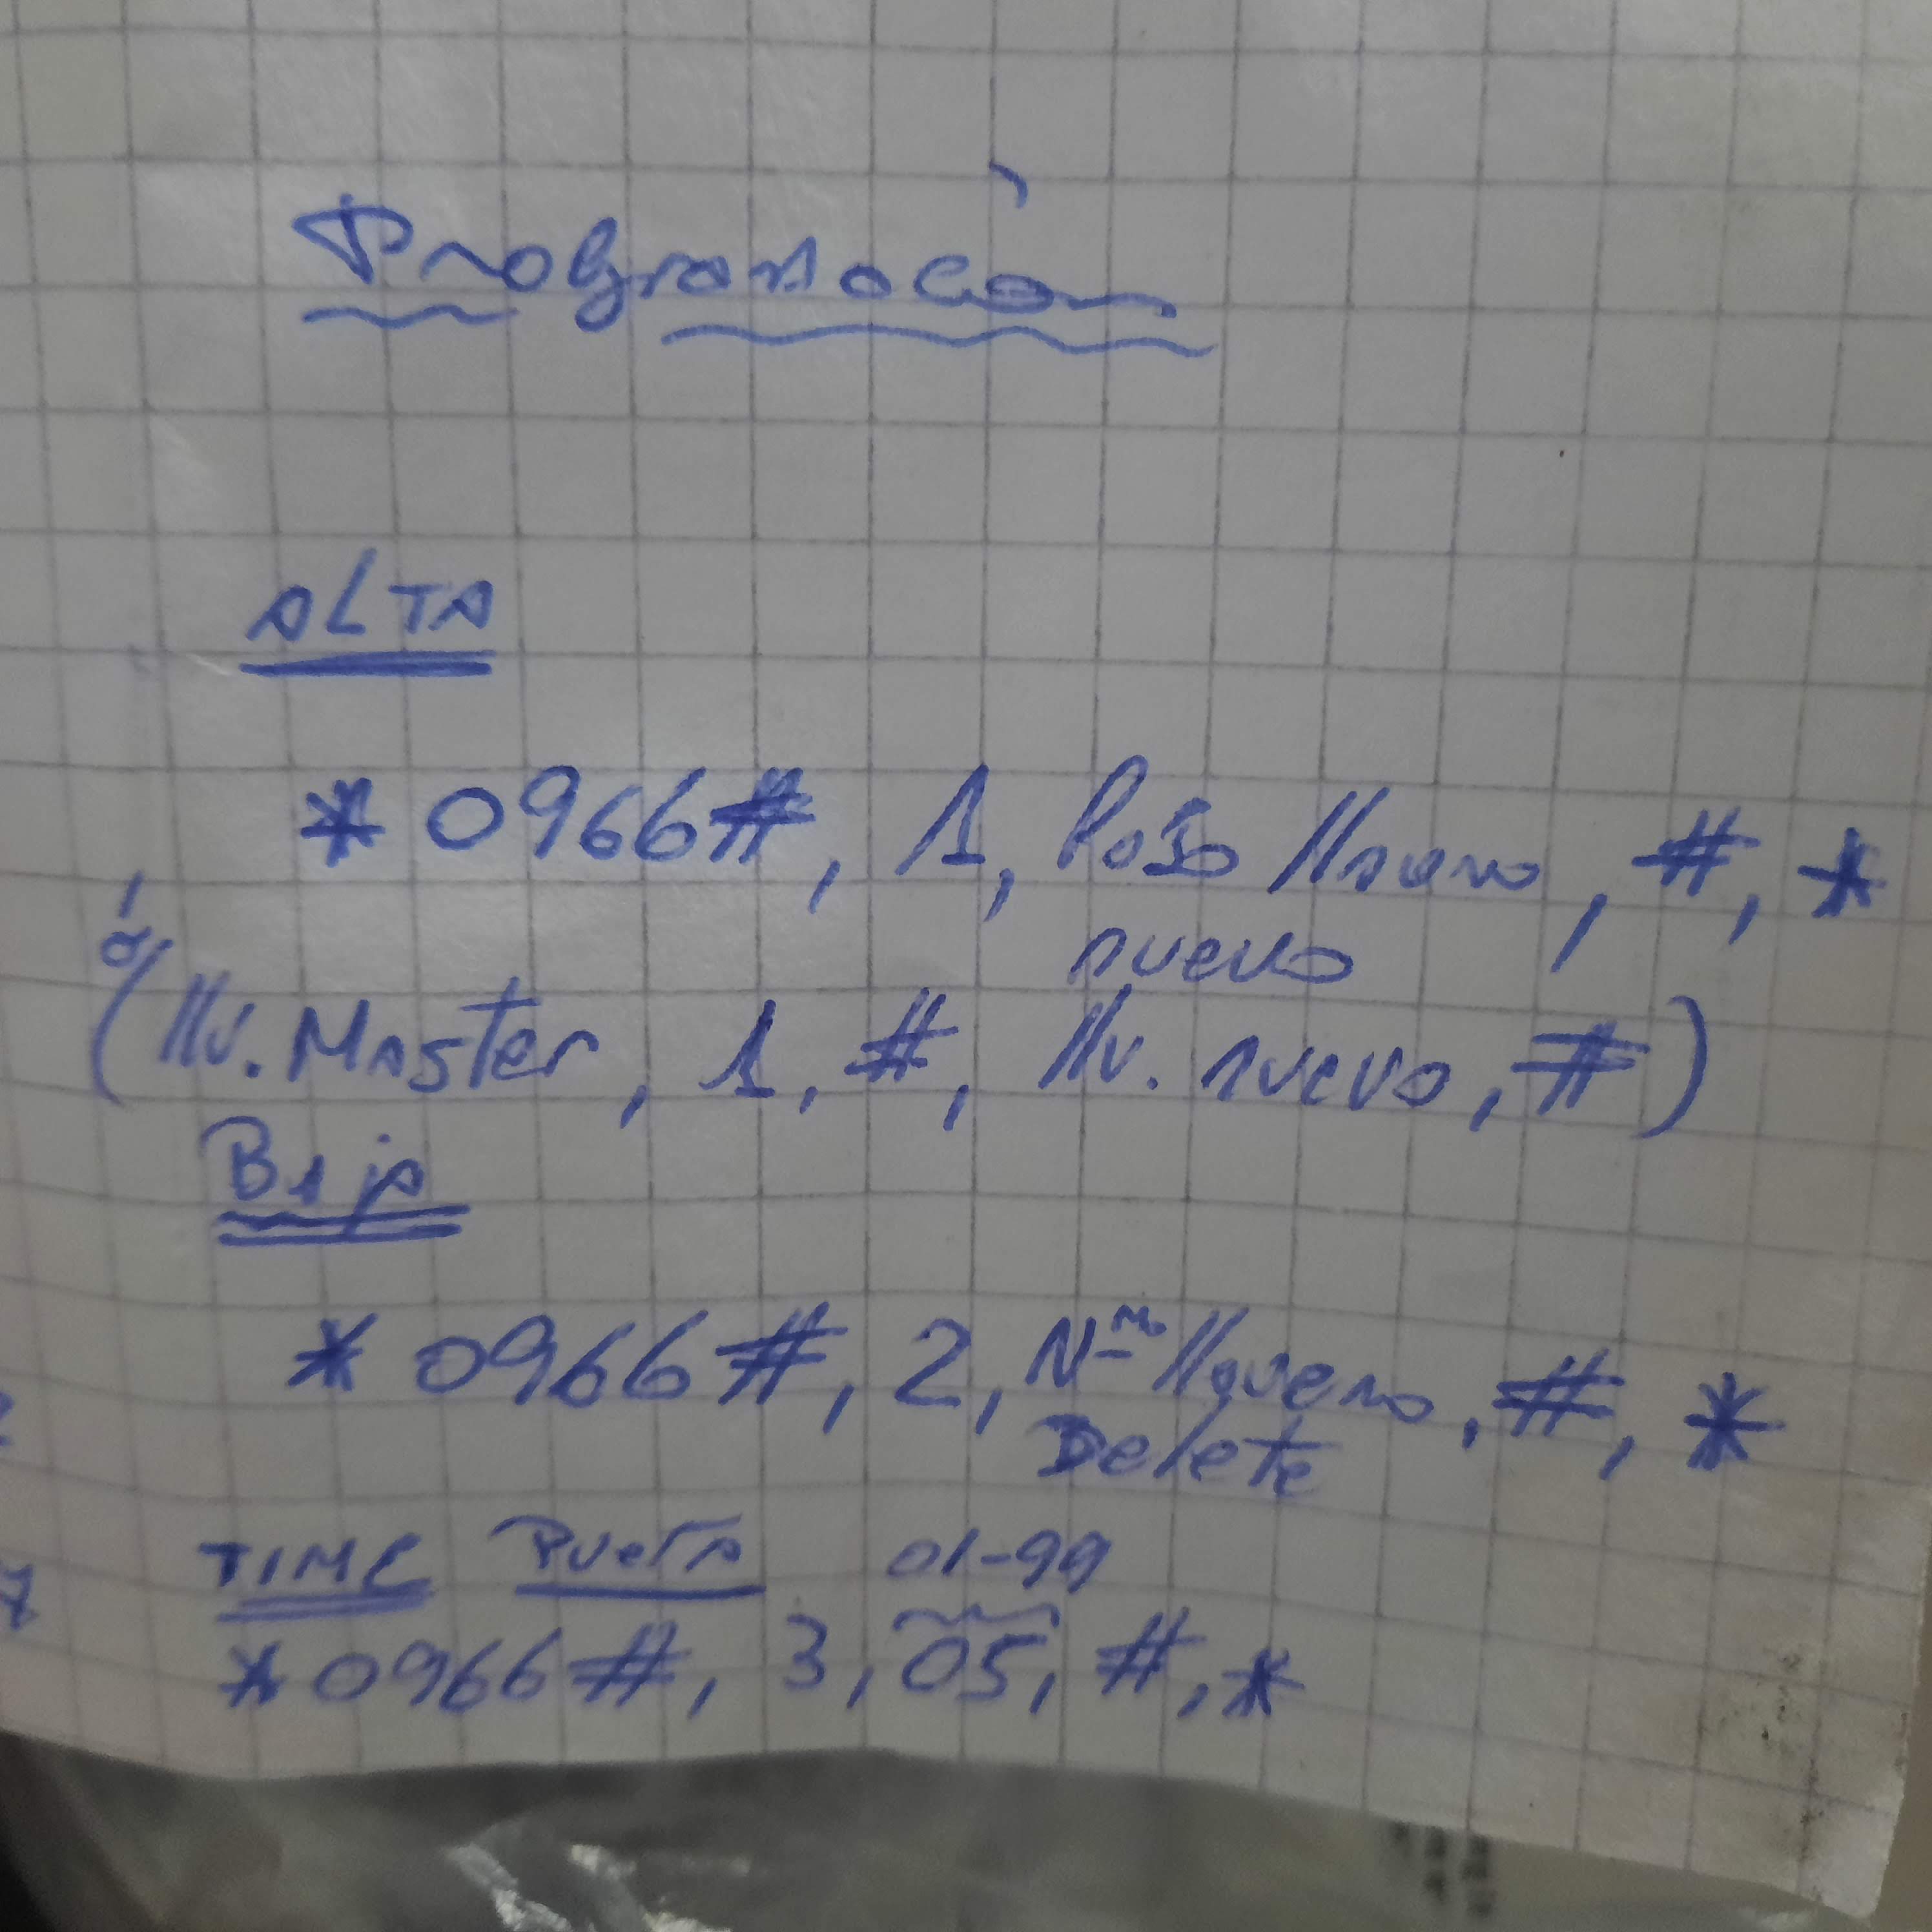 Programación
ALTA
* 0966#, 1, Paso llavero, #, *
nuevo
ó
(llv. Master, 1, #, llv. nuevo, #)
Baja
* 0966#, 2, Nro llavero, #, *
Delete
TIME Puerta 01-99
* 0966#, 3, 05, #, *